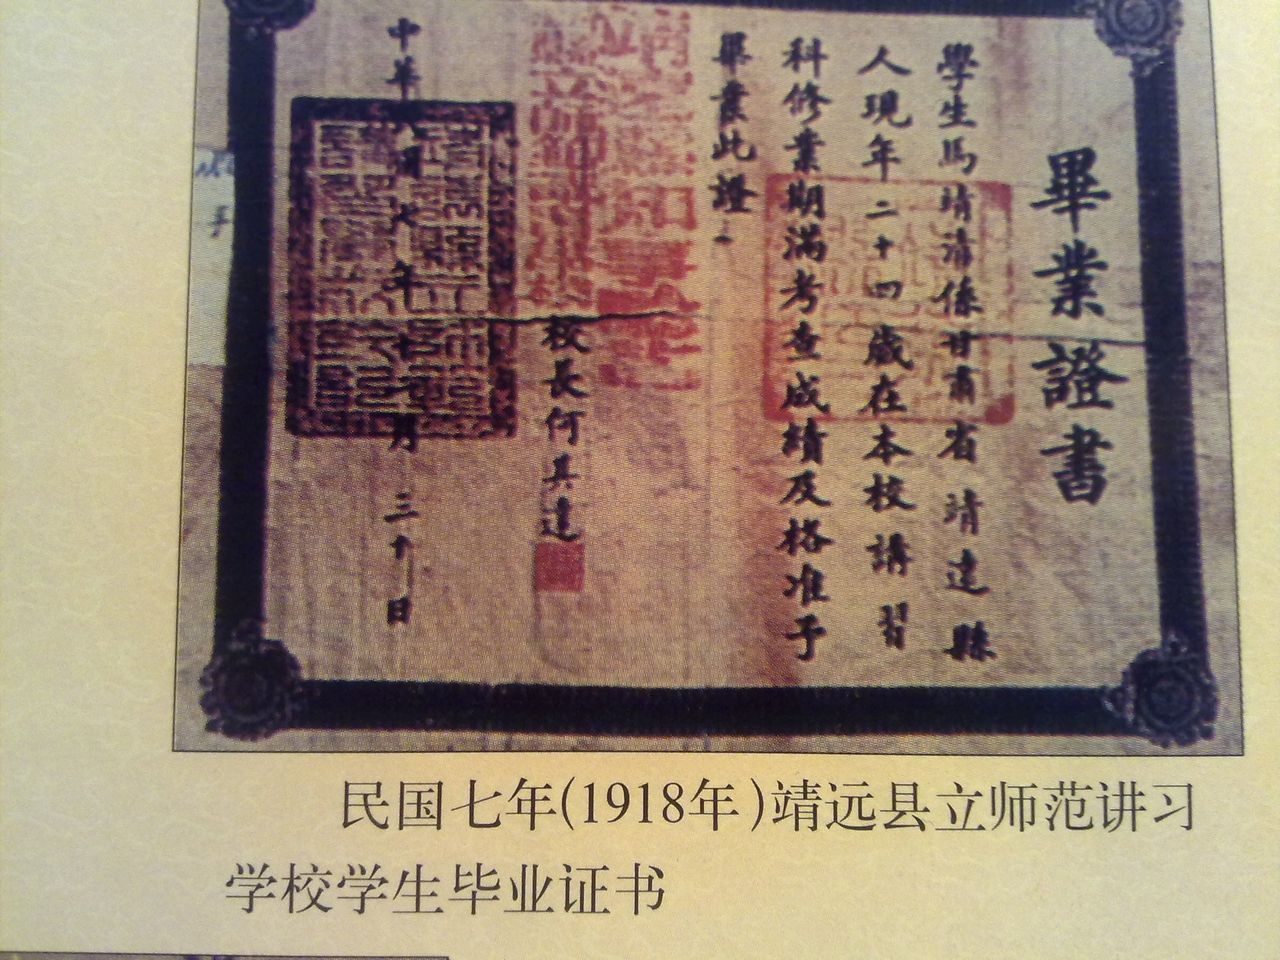 畢業證書
學生馬靖清係甘肅省靖遠縣
人現年二十四歲在本校講習
科修業期滿考查成績及格准予
畢業此證
校長何其達
中華民國七年十月三十日
民国七年(1918年)靖远县立师范讲习
学校学生毕业证书